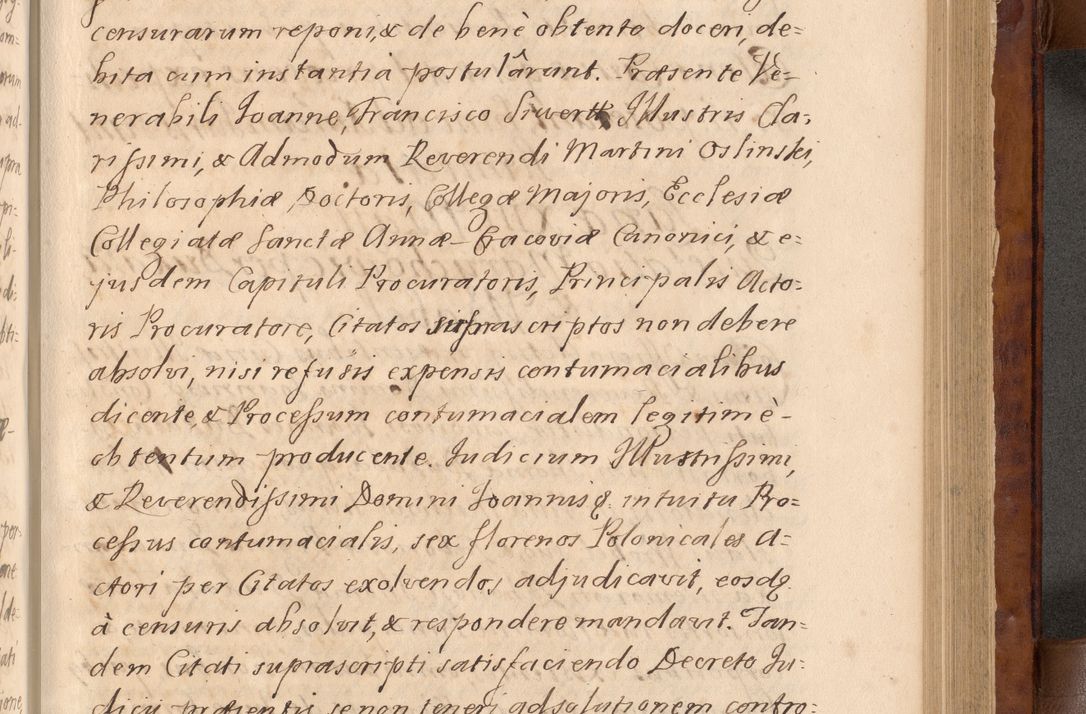 censurarum reponi, & de benè obtento doceri, de=
bita cum instantia postulârunt. Præsente Ve=
nerabili Ioanne, Francisco Siwertt, Illustris Cla=
rissimi, & Admodum Reverendi Martini Oslinski,
Philosophiæ Doctoris, Collegæ Majoris, Ecclesiæ
Collegiatæ Sanctæ Annæ Cracoviæ Canonici, & e=
jusdem Capituli Procuratoris, Principalis Acto=
ris Procuratore, Citatos suprascriptos non debere
absolvi, nisi refusis expensis contumacialibus
dicente, & Processum contumacialem legitimè
obtentum producente. Iudicium Illustrissimi,
& Reverendissimi Domini Ioannis q. intuitu Pro=
cessus contumacialis, sex florenos Polonicales A=
ctori per Citatos exolvendos adjudicavit, eosdq.
à censuris absolvit, & respondere mandavit. Tan=
dem Citati suprascripti satisfaciendo Decreto Iu=
dicij præsentis, se non teneri ad solutionem contro=